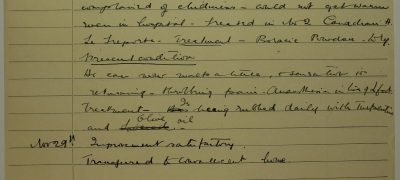 complained of chilliness - could not get warm
even in hospital - treated in No 2 Canadian H.
Le Treport - Treatment - Boracic Powder.
Present condition
He can now walk a little, sensation is
returning - throbbing pains - Anaesthesia in
Treatment - Is being rubbed daily with Turpentine
and Olive oil
Nov 29th Improvement satisfactory.
Transferred to convalescent home.